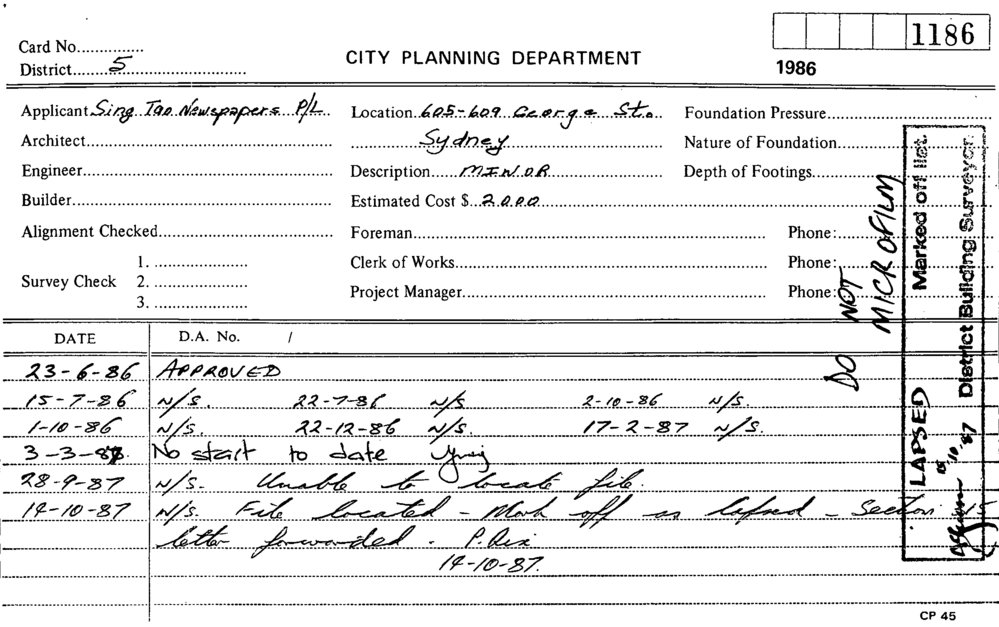 Card No...............
1186
District.........5...........................
CITY PLANNING DEPARTMENT
1986
Applicant Sing Tao Newspapers P/L
Location 605-609 George St.
Foundation Pressure
Architect
Sydney
Nature of Foundation
Engineer
Description MINOR
Depth of Footings
Builder
Estimated Cost $ 2000
Alignment Checked
Foreman
Phone:
Survey Check 1.
Clerk of Works
Phone:
2.
Project Manager
Phone:
3.
DO NOT MICROFILM
LAPSED Marked off list.
15/10/87 District Building Surveyor.
DATE D.A. No. /
23-6-86 APPROVED
15-7-86 N/S. 22-7-86 N/S 2-10-86 N/S.
1-10-86 N/S. 22-12-86 N/S. 17-2-87 N/S.
3-3-87. No start to date
28-9-87 N/S- Unable to locate file.
14-10-87 N/S. File located - Mark off as lapsed - Section 15
letter forwarded - P. Rix
14-10-87.
CP 45